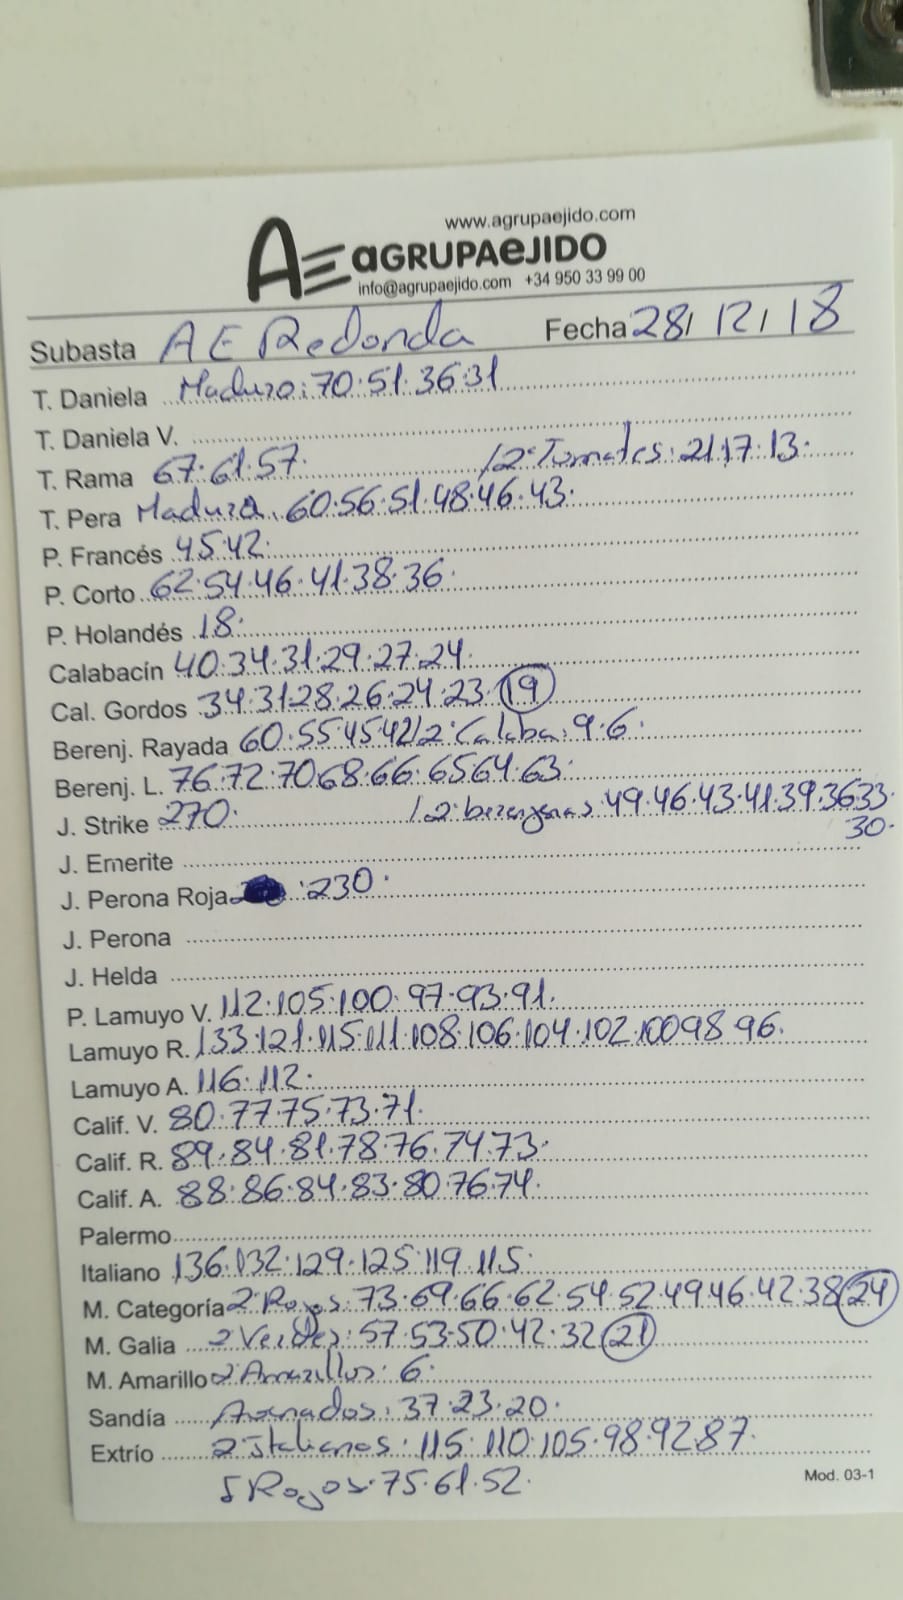 www.agrupaejido.com
AE aGRUPAeJIDO
info@agrupaejido.com +34 950 33 99 00
Subasta AE Redonda Fecha 28/12/18
T. Daniela Maduro: 70.51.36.31
T. Daniela V.
T. Rama 67.61.57. /2ª Tomates: 21.17.13.
T. Pera Madura. 60.56.51.48.46.43.
P. Francés 45.42.
P. Corto 62.54.46.41.38.36.
P. Holandés 18.
Calabacín 40.34.31.29.27.24.
Cal. Gordos 34.31.28.26.24.23.19
Berenj. Rayada 60.55.45.42/2ª Calaba: 9.6.
Berenj. L. 76.72.70.68.66.65.64.63.
J. Strike 270. /2ª berenjenas 49.46.43.41.39.36.33.
30.
J. Emerite
J. Perona Roja :230.
J. Perona
J. Helda
P. Lamuyo V. 112.105.100.97.93.91.
Lamuyo R. 133.121.115.111.108.106.104.102.100.98.96.
Lamuyo A. 116.112.
Calif. V. 80.77.75.73.71.
Calif. R. 89.84.81.78.76.74.73.
Calif. A. 88.86.84.83.80.76.74.
Palermo
Italiano 136.132.129.125.119.115.
M. Categoría 2ª Rojos: 73.69.66.62.54.52.49.46.42.38 24
M. Galia 2 Verdes: 57.53.50.42.32 21
M. Amarillo 2ª Amarillos: 6.
Sandía Asenados: 37.23.20.
Extrío 2ª Italianos: 115.110.105.98.92.87.
5 Rojos: 75.61.52.
Mod. 03-1